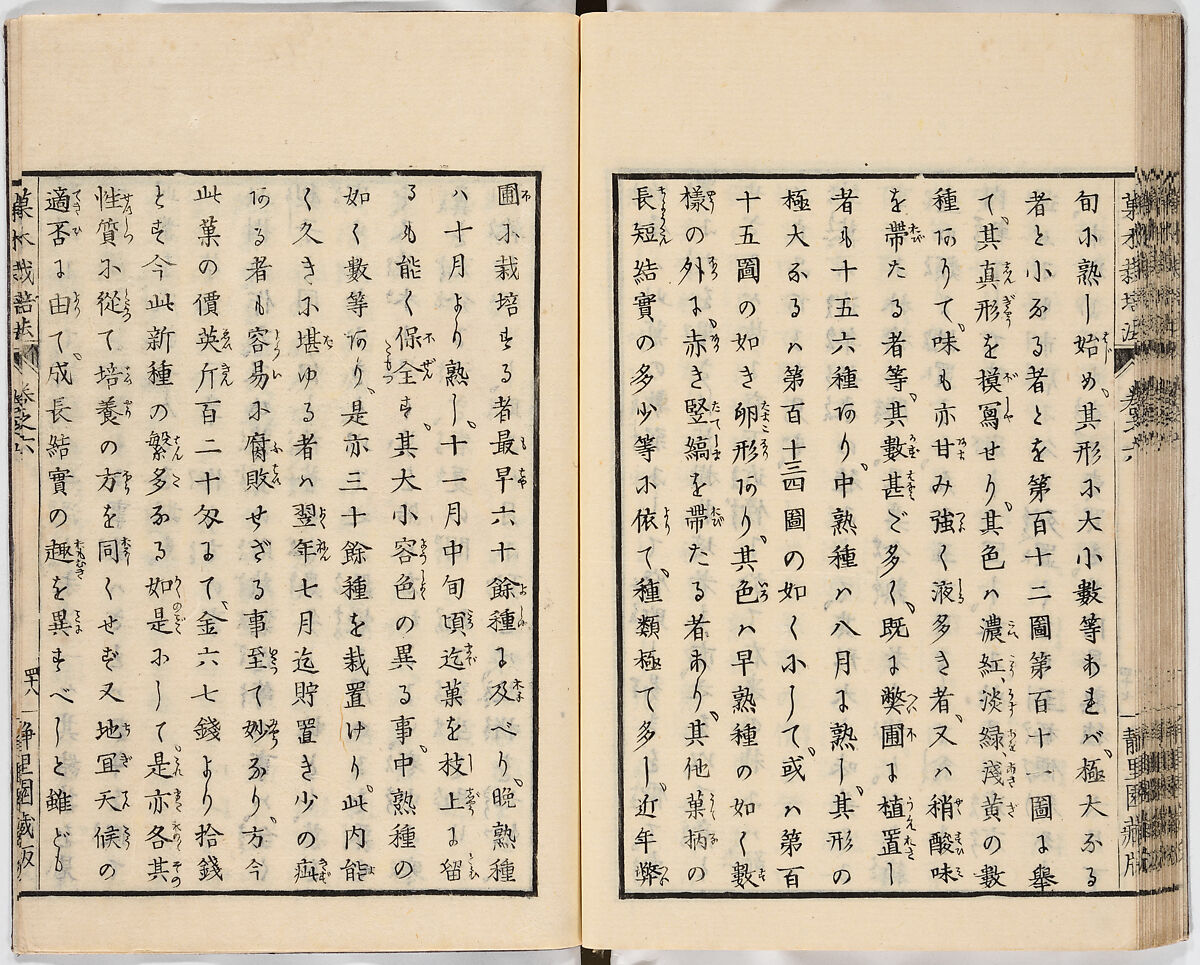 菓木栽培法 卷之六 靜里園藏版
旬ニ熟し始め、其形ニ大小數等あれバ、極大なる
者と小なる者とを第百十二圖第百十一圖に擧
て、其真形を模寫せり、其色ハ濃紅、淡緑、淺黄の數
種ありて、味も亦甘み強く液多き者、又ハ稍酸味
を帶たる者等、其數甚ど多く、既に弊圃に植置し
者も十五六種あり、中熟種ハ、八月に熟し、其形の
極大なるハ第百十三四圖の如くにして、或ハ第百
十五圖の如き卵形あり、其色ハ早熟種の如く數
樣の外に、赤き竪縞を帶たる者あり、其他菓柄の
長短結實の多少等に依て、種類極て多し、近年弊
圃に栽培する者最早六十餘種に及べり、晩熟種
ハ十月より熟し、十一月中旬頃迄菓を枝上に留
るも能く保全す、其大小容色の異る事、中熟種の
如く數等あり、是亦三十餘種を栽置けり、此内能
く久きに堪ゆる者ハ翌年七月迄貯置き少の疵
ある者も容易に腐敗せざる事至て妙なり、方今
此菓の價英斤百二十匁にて、金六七錢より拾錢
とす今此新種の繁多なる如是にして、是亦各其
性質に從て培養の方を同くせず又地宜天候の
適否に由て、成長結實の趣を異すべしと雖ども
菓木栽培法 卷之六 四十八 靜里園藏版